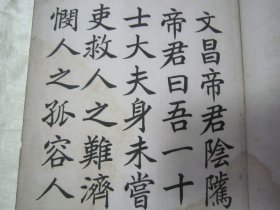 文昌帝君陰隲
帝君曰吾一十
士大夫身未嘗
吏救人之難濟
憫人之孤容人